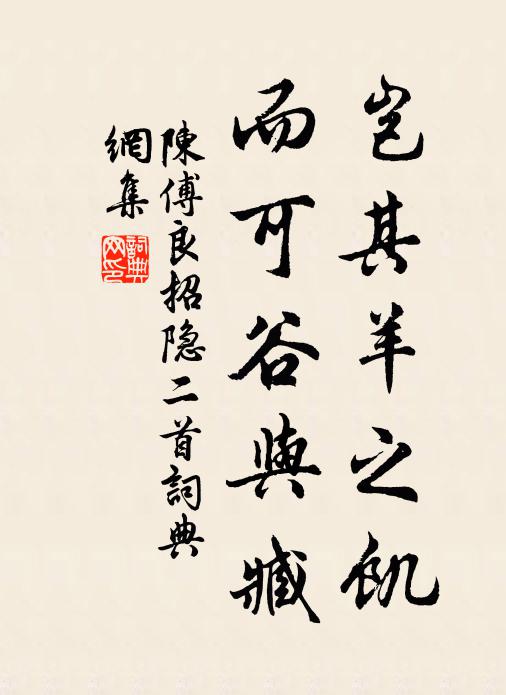 岂其羊之飢
而可谷與臧
陳傅良招隐二首詞典
網集
詞典网印